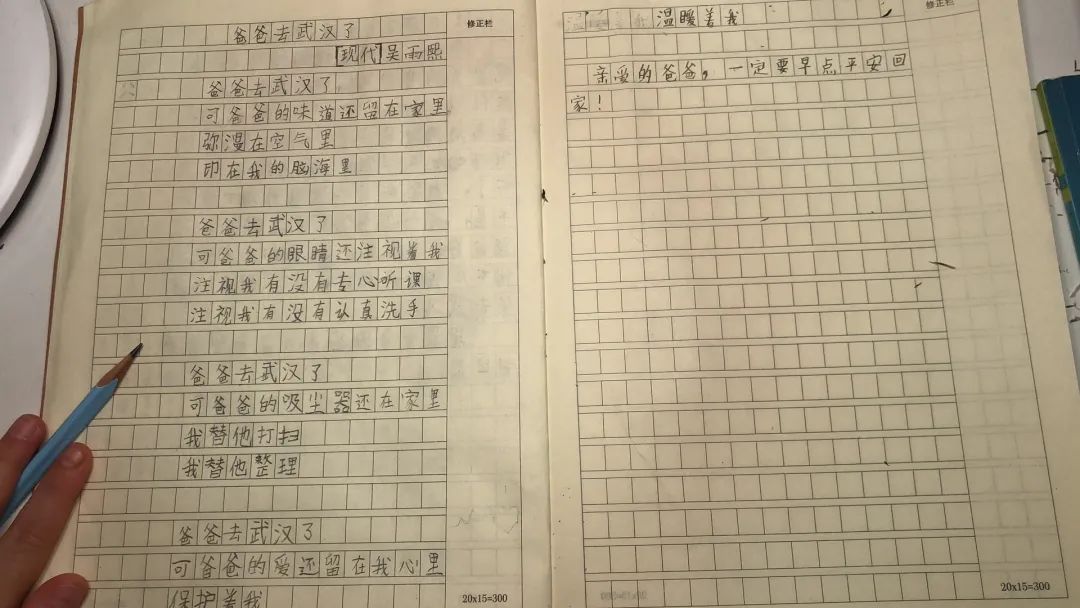 爸爸去武汉了
[现代]吴雨熙
爸爸去武汉了
可爸爸的味道还留在家里
弥漫在空气里
印在我的脑海里
爸爸去武汉了
可爸爸的眼睛还注视着我
注视我有没有专心听课
注视我有没有认真洗手
爸爸去武汉了
可爸爸的吸尘器还在家里
我替他打扫
我替他整理
爸爸去武汉了
可爸爸的爱还留在我心里
保护着我
修正栏
20x15=300
温暖着我
亲爱的爸爸，一定要早点平安回
家！
修正栏
20x15=300